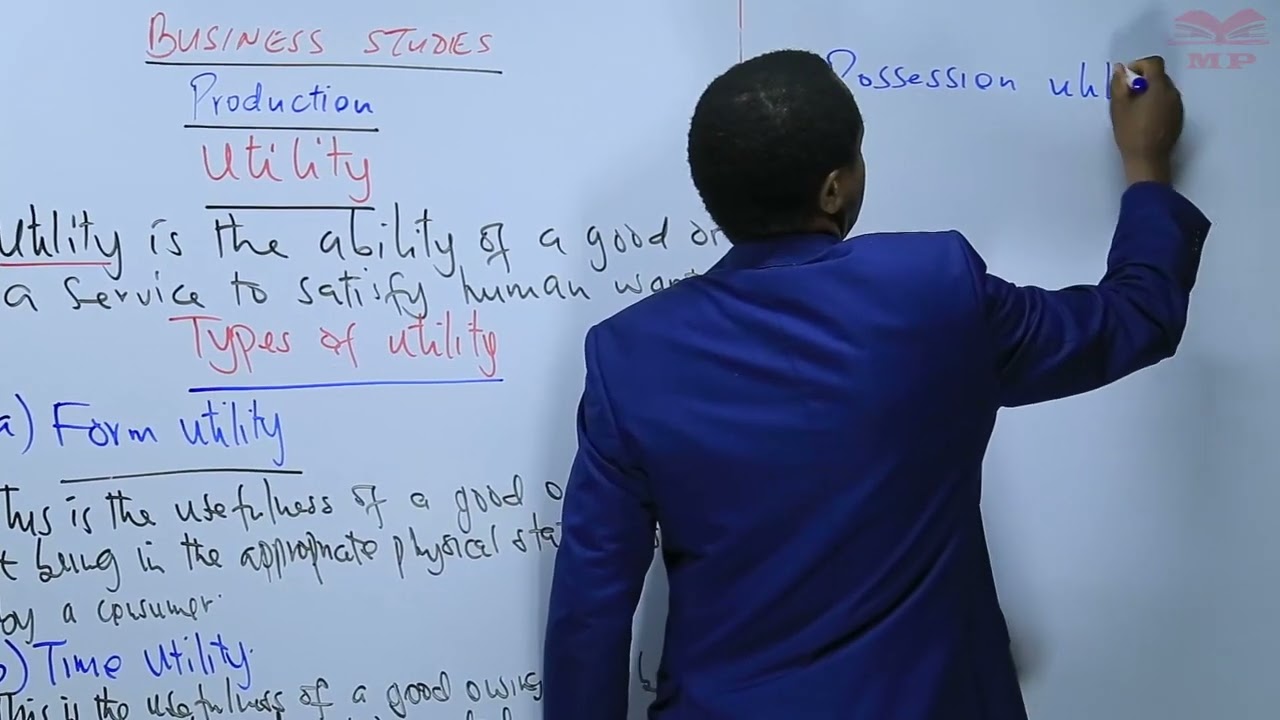 BUSINESS STUDIES
Production
Utility
Utility is the ability of a good or
a service to satisfy human
Types of utility
a) Form utility
This is the usefulness of a good
being in the appropriate physical
by a consumer.
b) Time Utility.
This is the usefulness of a good owing
Possession
MP